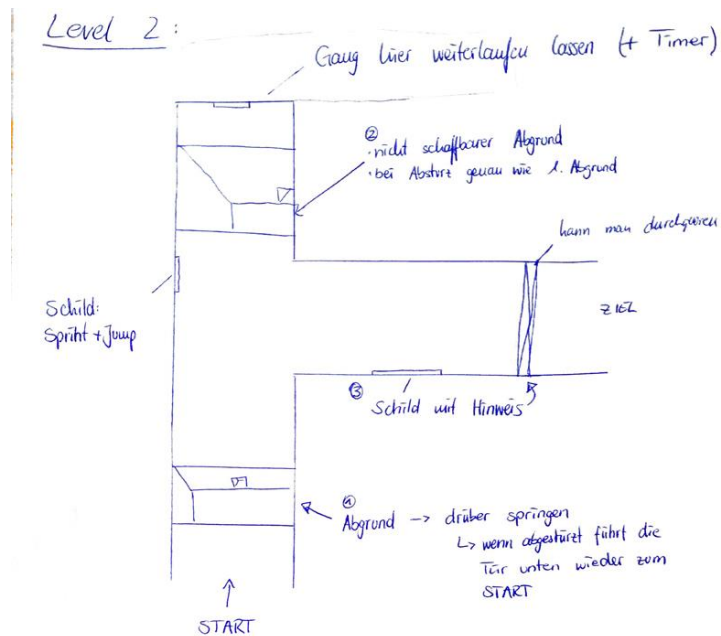 Level 2:
Gang hier weiterlaufen lassen (+ Timer)
②
· nicht schaffbarer Abgrund
· bei Absturz genau wie 1. Abgrund
kann man durchqueren
Schild:
Sprint + Jump
ZIEL
③
Schild mit Hinweis
①
Abgrund -> drüber springen
↳ wenn abgestürzt führt die
Tür unten wieder zum
START
START